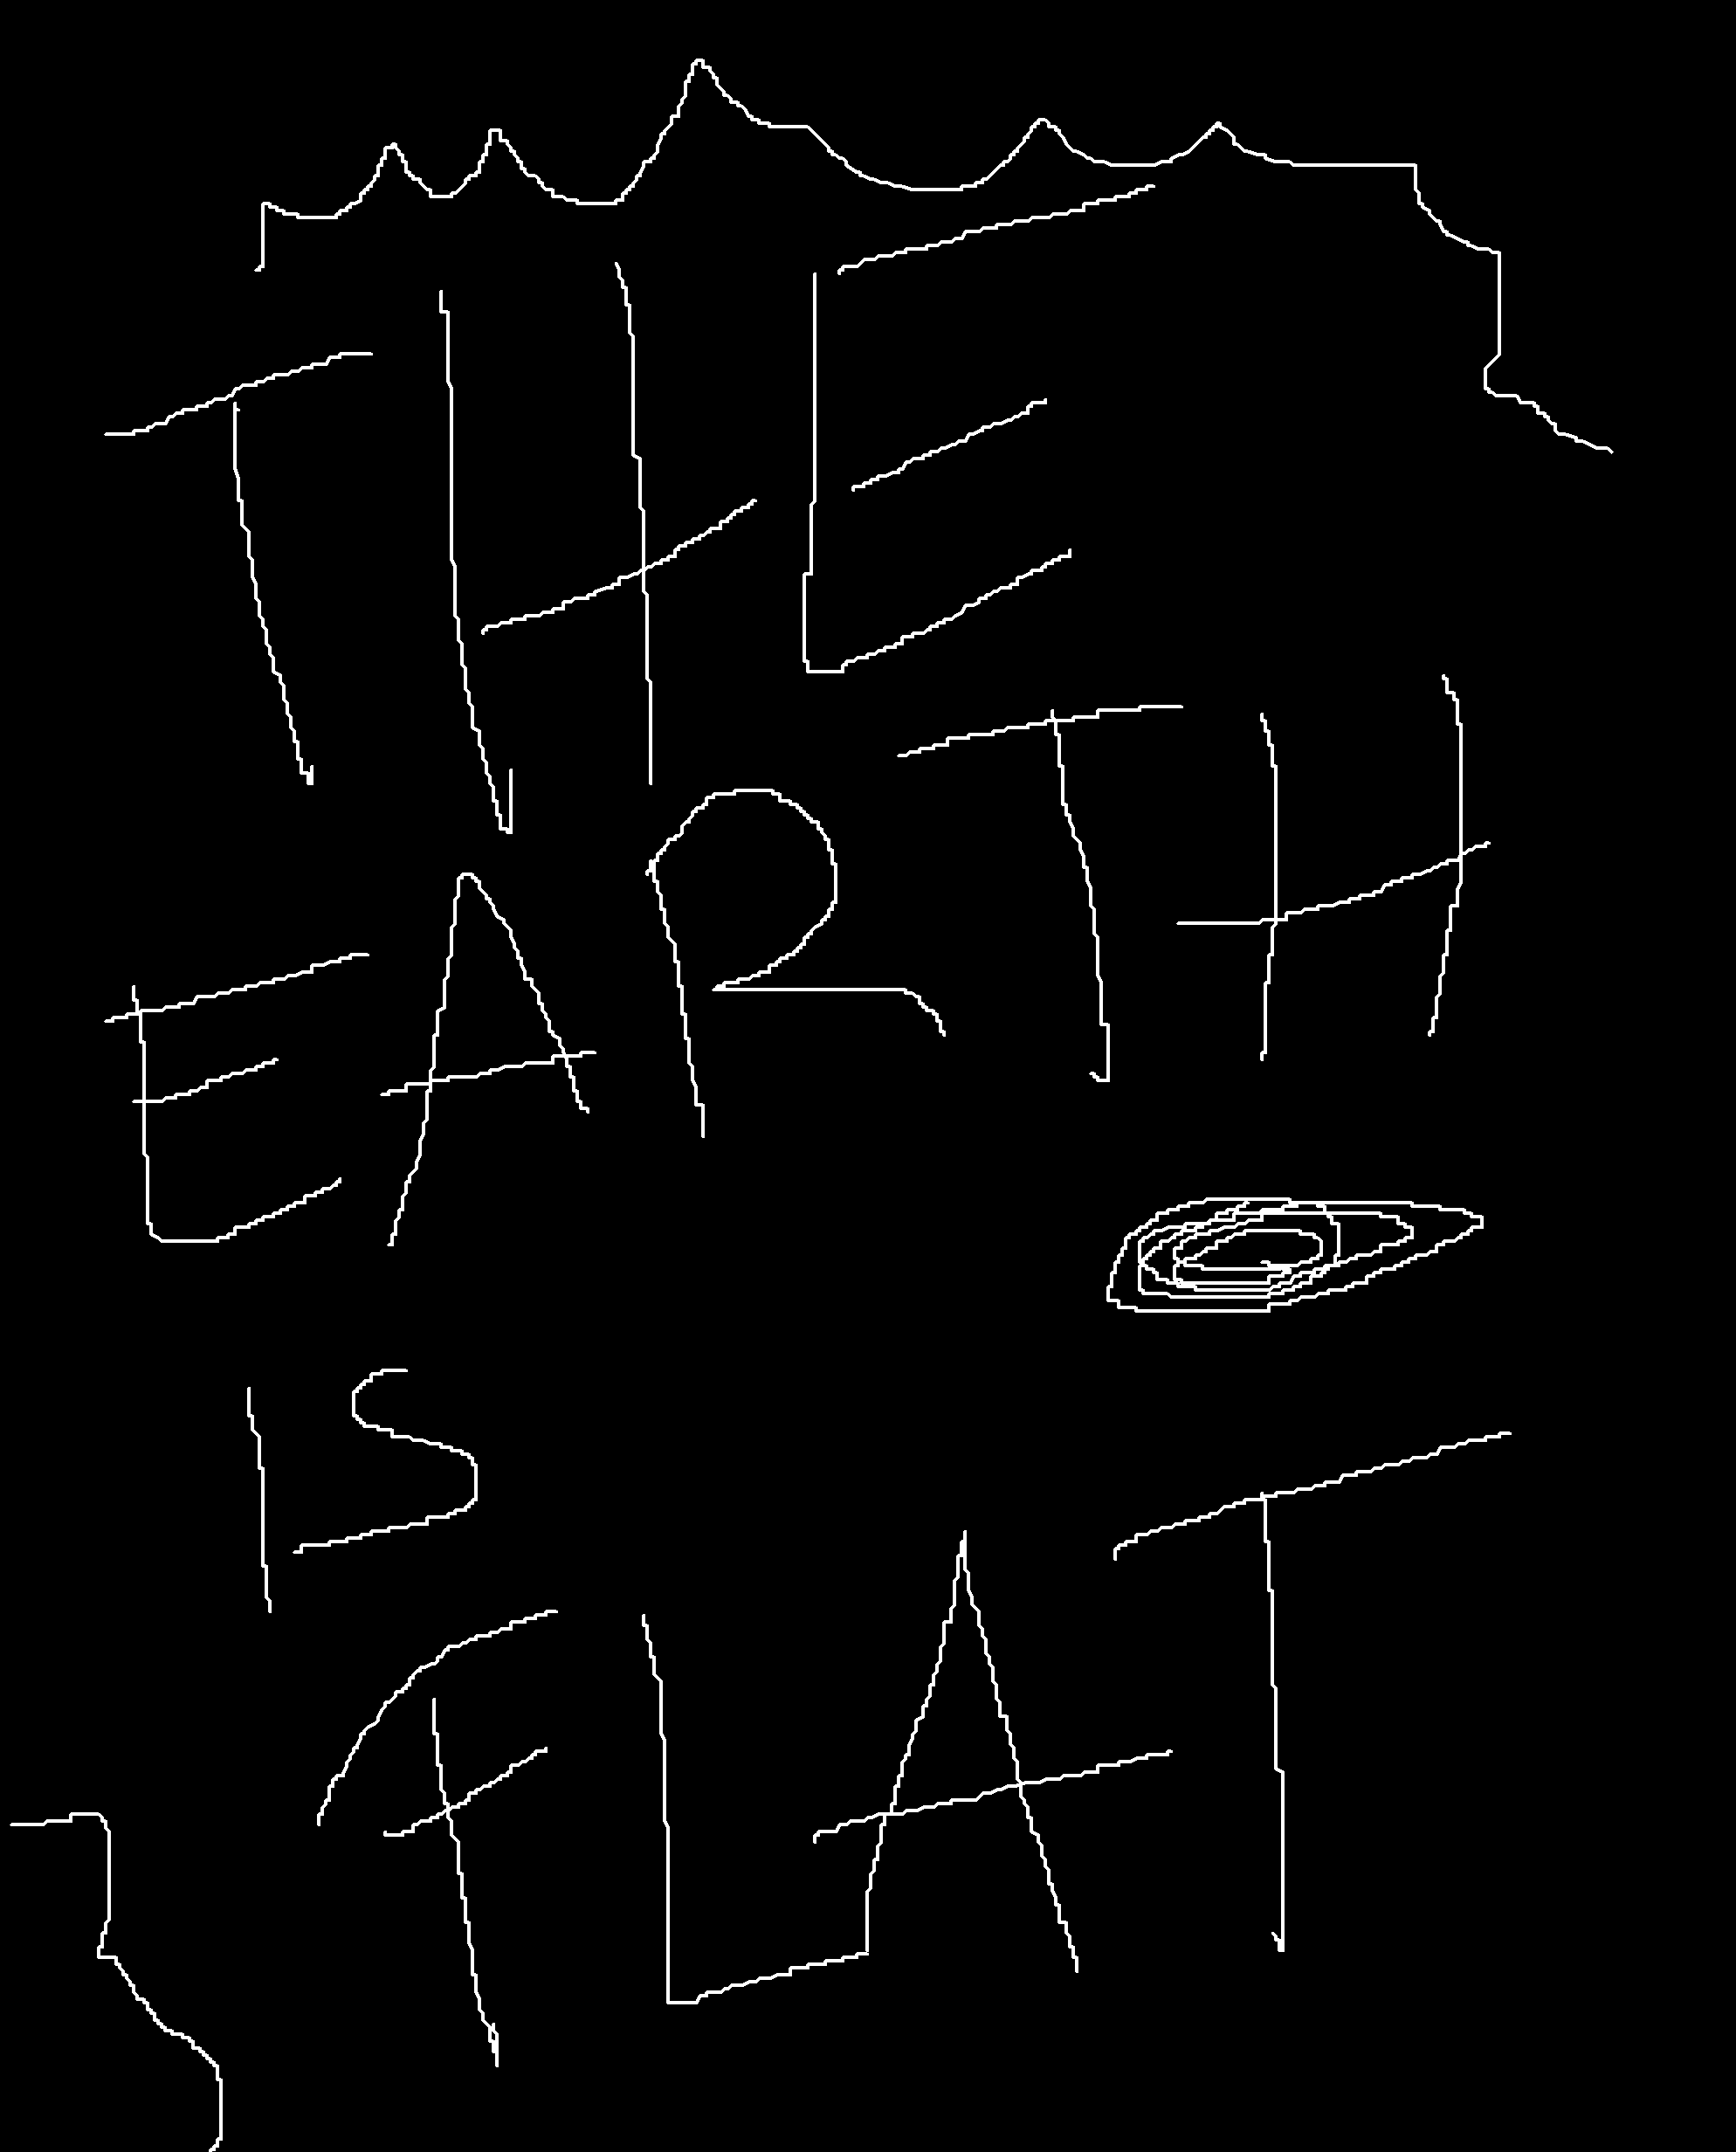 THE
EARTH
IS
FLAT